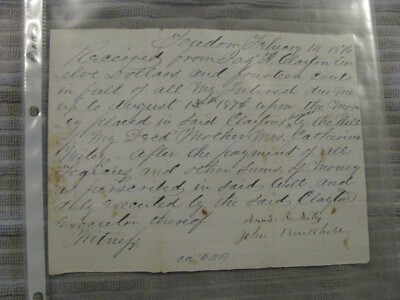 Received from Jas. A. Clayton Tw
elve Dollars and fourteen cents
in full of all My Interest due me
up to August 12th 1875 upon the Mon
ey placed in Said Claytons by the Will
of My Decd Mother Mrs. Catherine
Wiley – after the payment of all
Legacies and other Sums of Money
as prescribed in Said Will and
duly executed by the Said, Clayton
Executor thereof
Annie Wiley
Witness
John